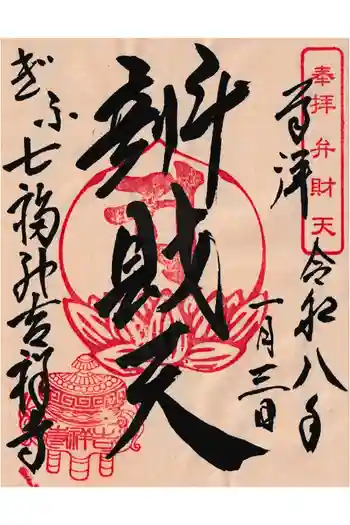 奉拝 弁財天
奉拝
令和八年
一月三日
辨財天
ぎふ七福神吉祥寺